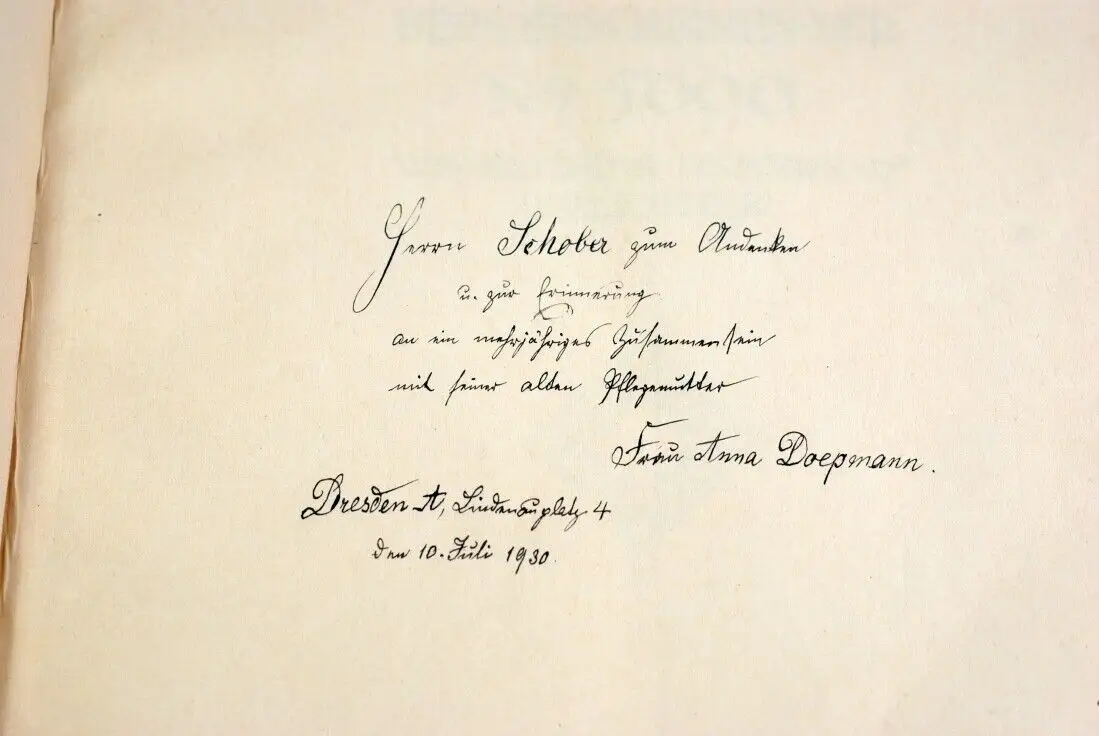 Herrn Schober zum Andenken
u. zur Erinnerung
an ein mehrjähriges Zusammensein
mit seiner alten Pflegemutter
Frau Anna Doepmann.
Dresden-A, Lindenauplatz 4
den 10. Juli 1930.